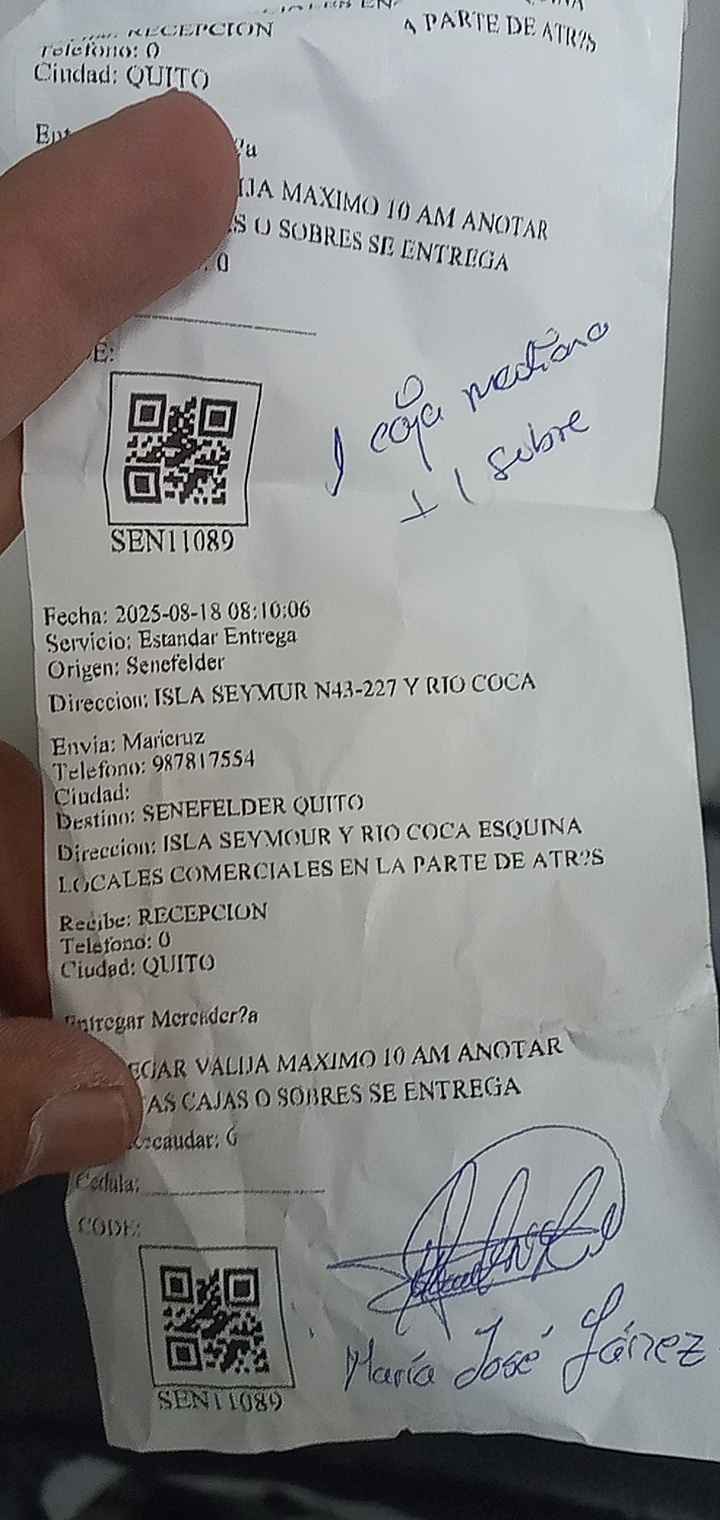 RECEPCION
A PARTE DE ATR?S
Telefono: 0
Ciudad: QUITO
?a
MAXIMO 10 AM ANOTAR
O SOBRES SE ENTREGA
0
E:
1 caja mediana
+ 1 sobre
SEN11089
Fecha: 2025-08-18 08:10:06
Servicio: Estandar Entrega
Origen: Senefelder
Direccion: ISLA SEYMUR N43-227 Y RIO COCA
Envia: Maricruz
Telefono: 987817554
Ciudad:
Destino: SENEFELDER QUITO
Direccion: ISLA SEYMOUR Y RIO COCA ESQUINA
LOCALES COMERCIALES EN LA PARTE DE ATR?S
Recibe: RECEPCION
Telefono: 0
Ciudad: QUITO
Entregar Mercader?a
EGAR VALIJA MAXIMO 10 AM ANOTAR
AS CAJAS O SOBRES SE ENTREGA
ecaudar: 0
Cedula:
CODE:
María José Yánez
SEN11089